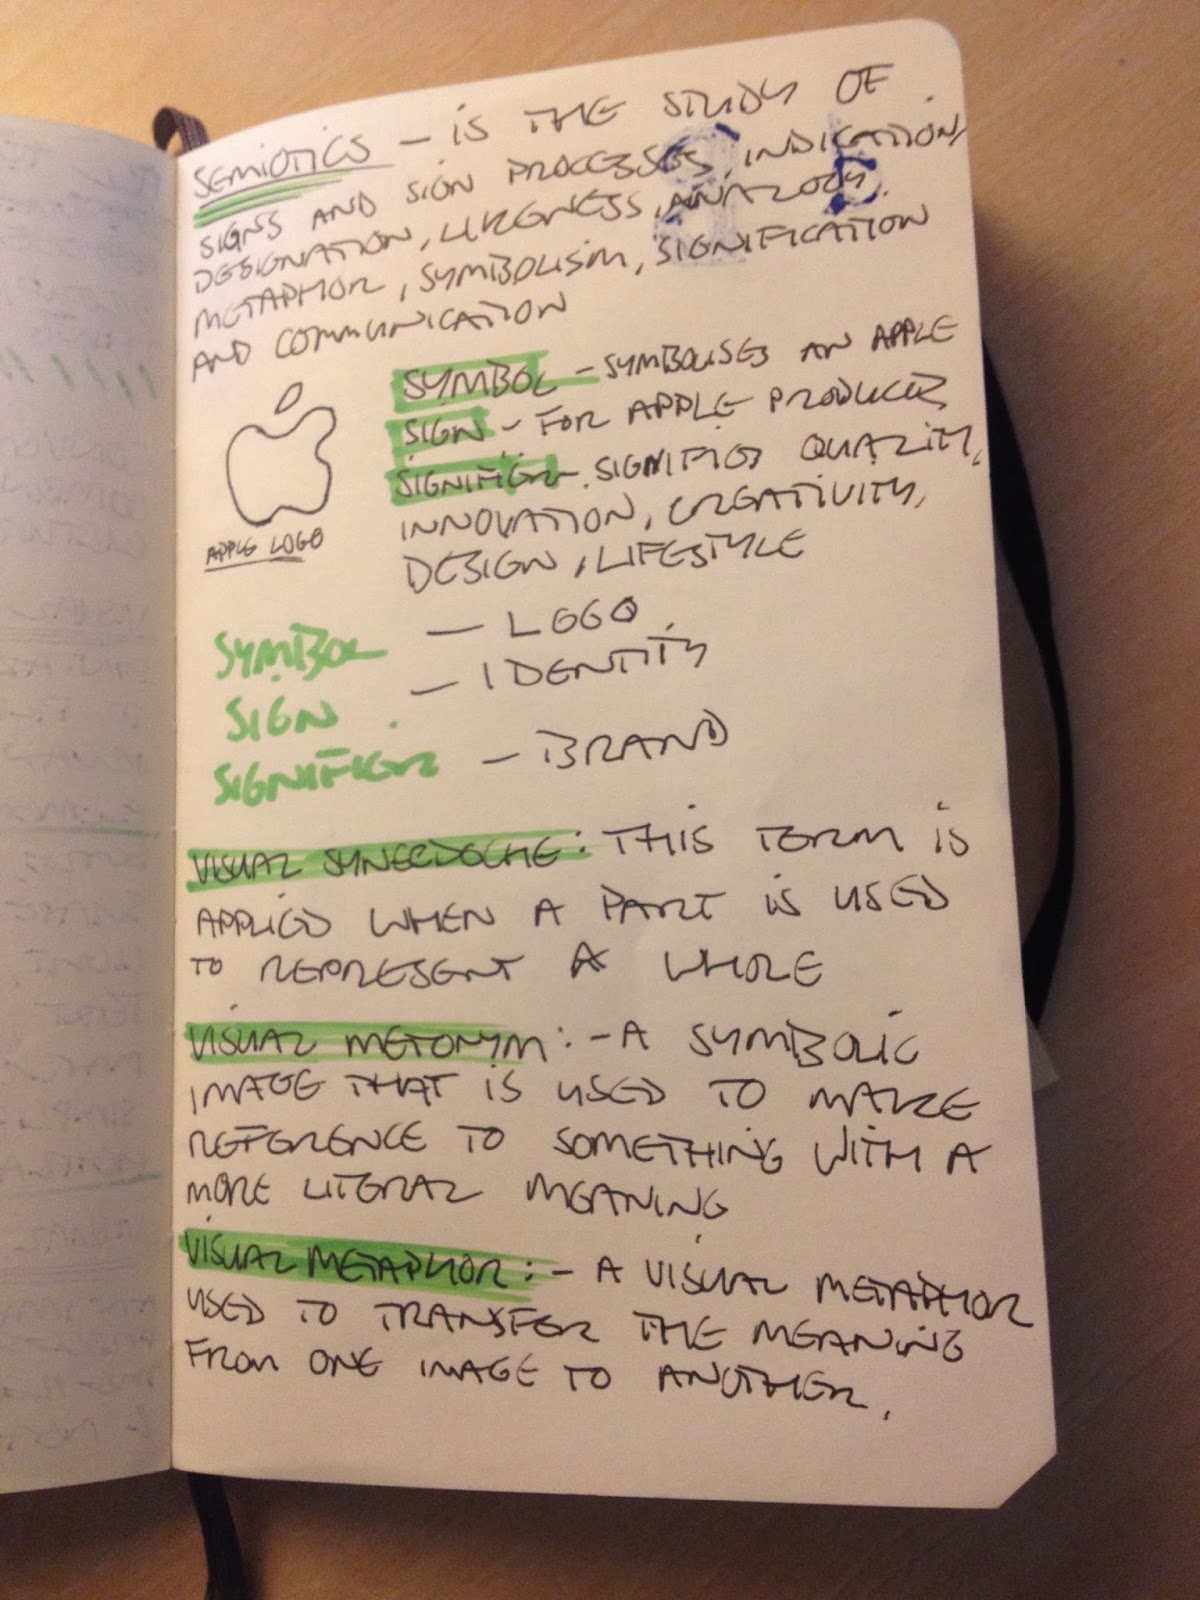 SEMIOTICS — IS THE STUDY OF
SIGNS AND SIGN PROCESSES, INDICATION,
DESIGNATION, LIKENESS, ANALOGY,
METAPHOR, SYMBOLISM, SIGNIFICATION
AND COMMUNICATION
SYMBOL - SYMBOLISES AN APPLE
SIGN - FOR APPLE PRODUCTS
SIGNIFIER - SIGNIFIES QUALITY,
INNOVATION, CREATIVITY,
DESIGN, LIFESTYLE
APPLE LOGO
SYMBOL — LOGO
SIGN — IDENTITY
SIGNIFIER — BRAND
VISUAL SYNECDOCHE: THIS TERM IS
APPLIED WHEN A PART IS USED
TO REPRESENT A WHOLE
VISUAL METONYM: - A SYMBOLIC
IMAGE THAT IS USED TO MAKE
REFERENCE TO SOMETHING WITH A
MORE LITERAL MEANING
VISUAL METAPHOR: - A VISUAL METAPHOR
USED TO TRANSFER THE MEANING
FROM ONE IMAGE TO ANOTHER.